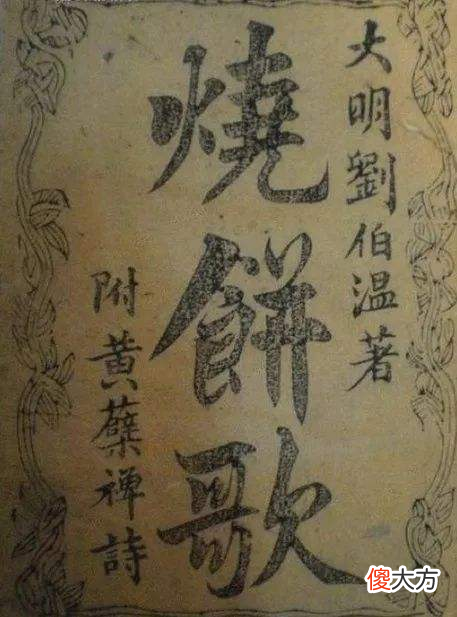 大明劉伯温著
燒餅歌
附黄蘗禅詩
傻大方